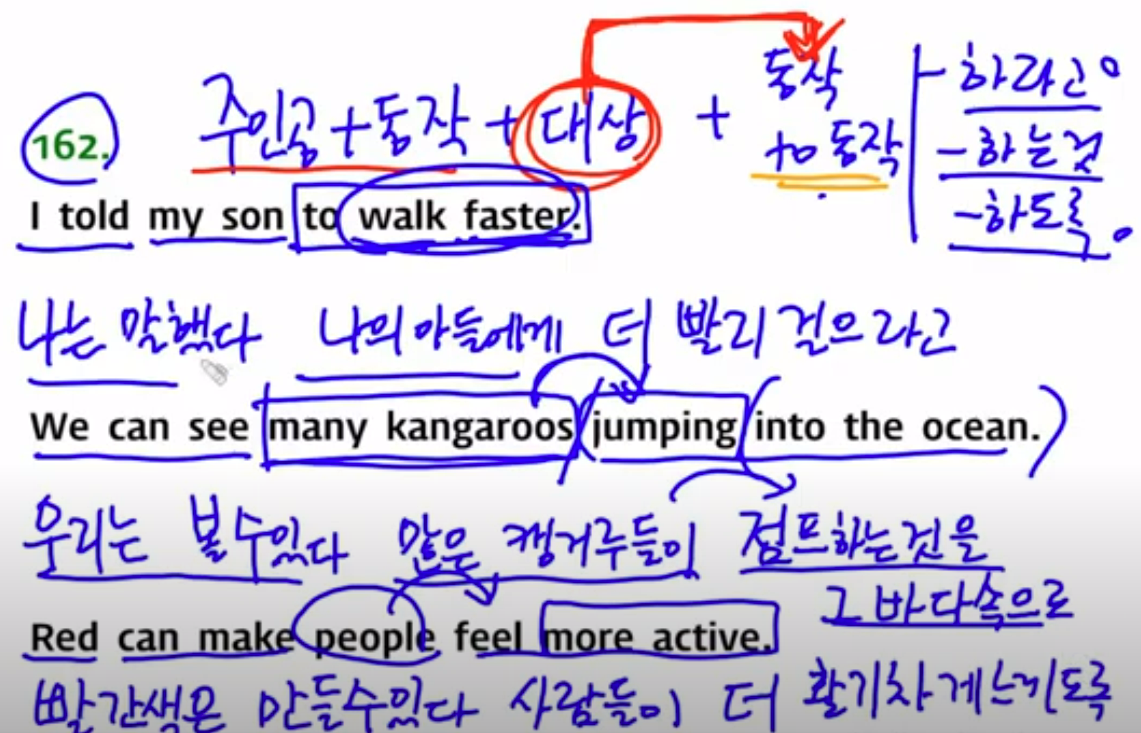 162. 주인공 + 동작 + 대상 + 동작 to 동작
-하라고
-하는것
-하도록
I told my son to walk faster.
나는 말했다 나의 아들에게 더 빨리 걸으라고
We can see many kangaroos jumping into the ocean.
우리는 볼수있다 많은 캥거루들이 점프하는것을
그 바다속으로
Red can make people feel more active.
빨간색은 만들수있다 사람들이 더 활기차게느끼도록